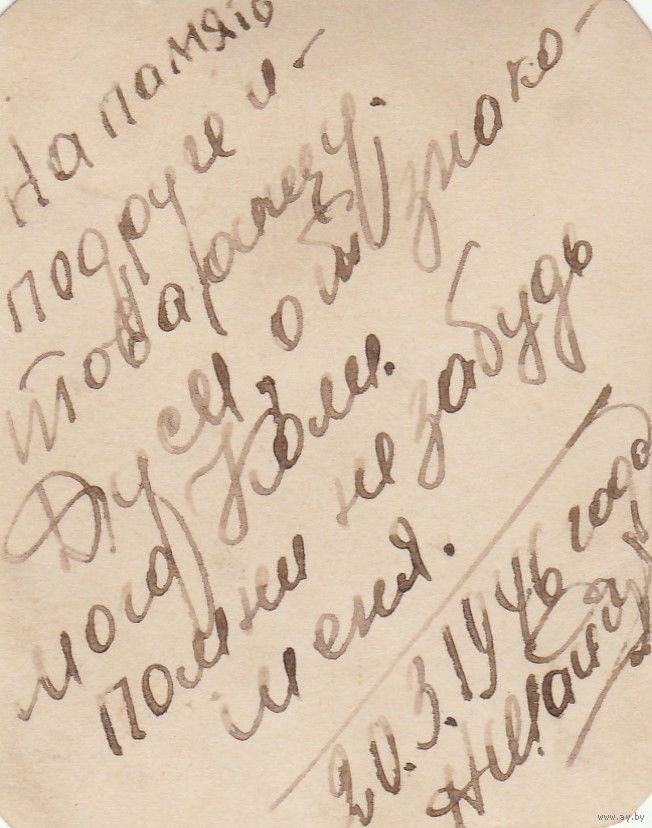 На память
подруге и-
товарищу.
Дуси. от знако-
мога Коли.
помни не забудь
меня.
20.3.1946 года
www.ay.by